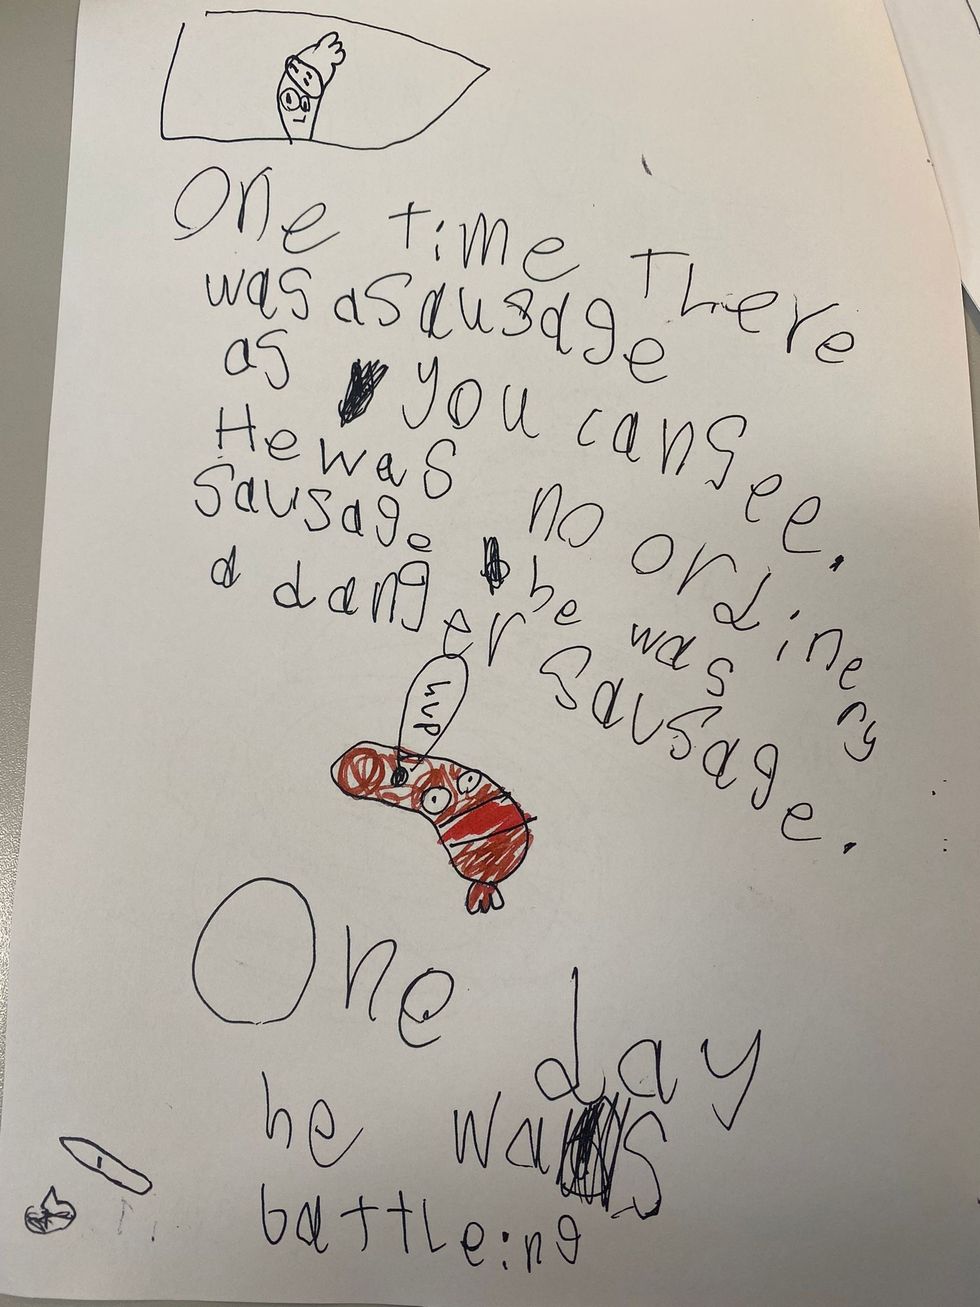 One time There
was a sausage
as you can see.
He was no ordinery
sausage he was
a danger sausage.
One day
he was
battleing